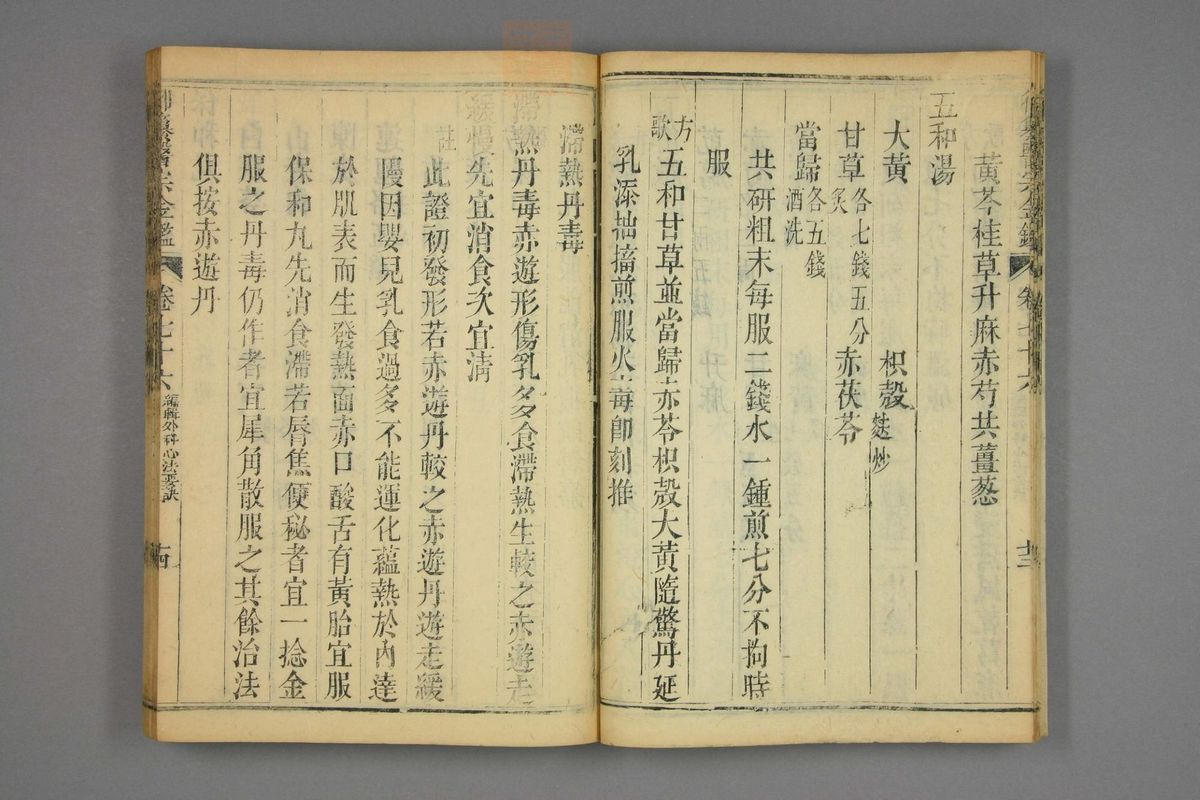 黃芩桂草升麻赤芍共薑葱
五和湯
大黃 枳殼麩炒
甘草炙各七錢五分 赤茯苓
當歸酒洗各五錢
共研粗末每服二錢水一鍾煎七分不拘時
服
方歌 五和甘草並當歸赤苓枳殼大黃隨驚丹延
乳添拙搐煎服火毒卽刻推
卷七十六
滯熱丹毒
滯熱丹毒赤遊形傷乳多食滯熱生較之赤遊走
緩慢先宜消食次宜清
註 此證初發形若赤遊丹較之赤遊丹遊走緩
慢因嬰兒乳食過多不能運化蘊熱於內達
於肌表而生發熱面赤口酸舌有黃胎宜服
保和丸先消食滯若唇焦便秘者宜一捻金
服之丹毒仍作者宜犀角散服之其餘治法
俱按赤遊丹
御纂醫宗金鑑 卷七十六 編輯外科心法要訣 十四